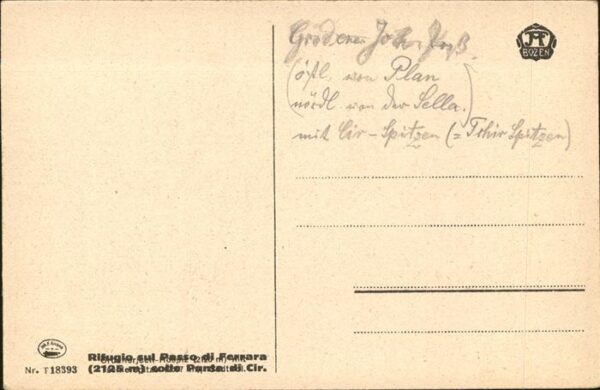 Grödener Joch-Paß
(östl. von Plan
nördl. von der Sella.)
mit Cir-Spitzen (= Tschir Spitzen)
BOZEN
Rifugio sul Passo di Ferrara
(2125 m) sotto Punta di Cir.
Nr. T 18393